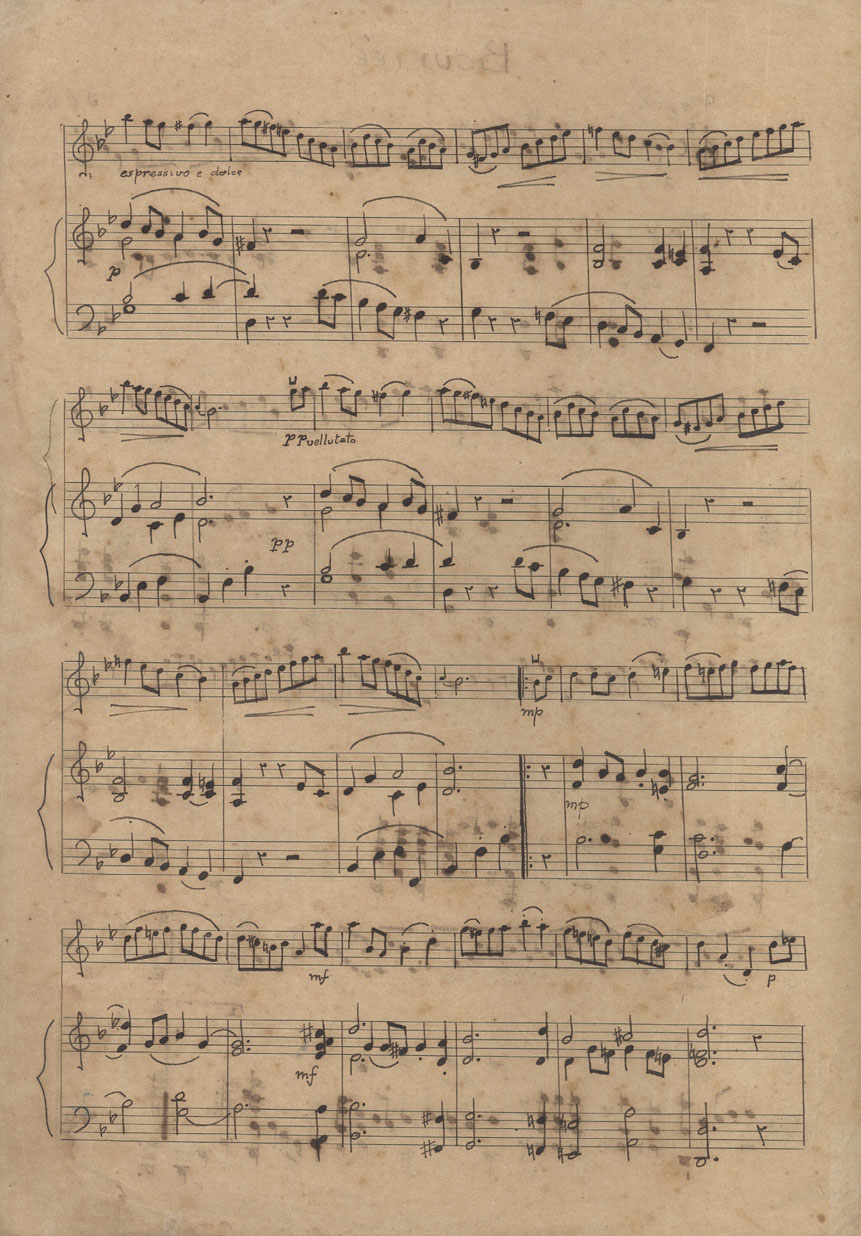 Bourrée
espressivo e dolce
p
pp vellutato
pp
mp
mp
mf
p
mf